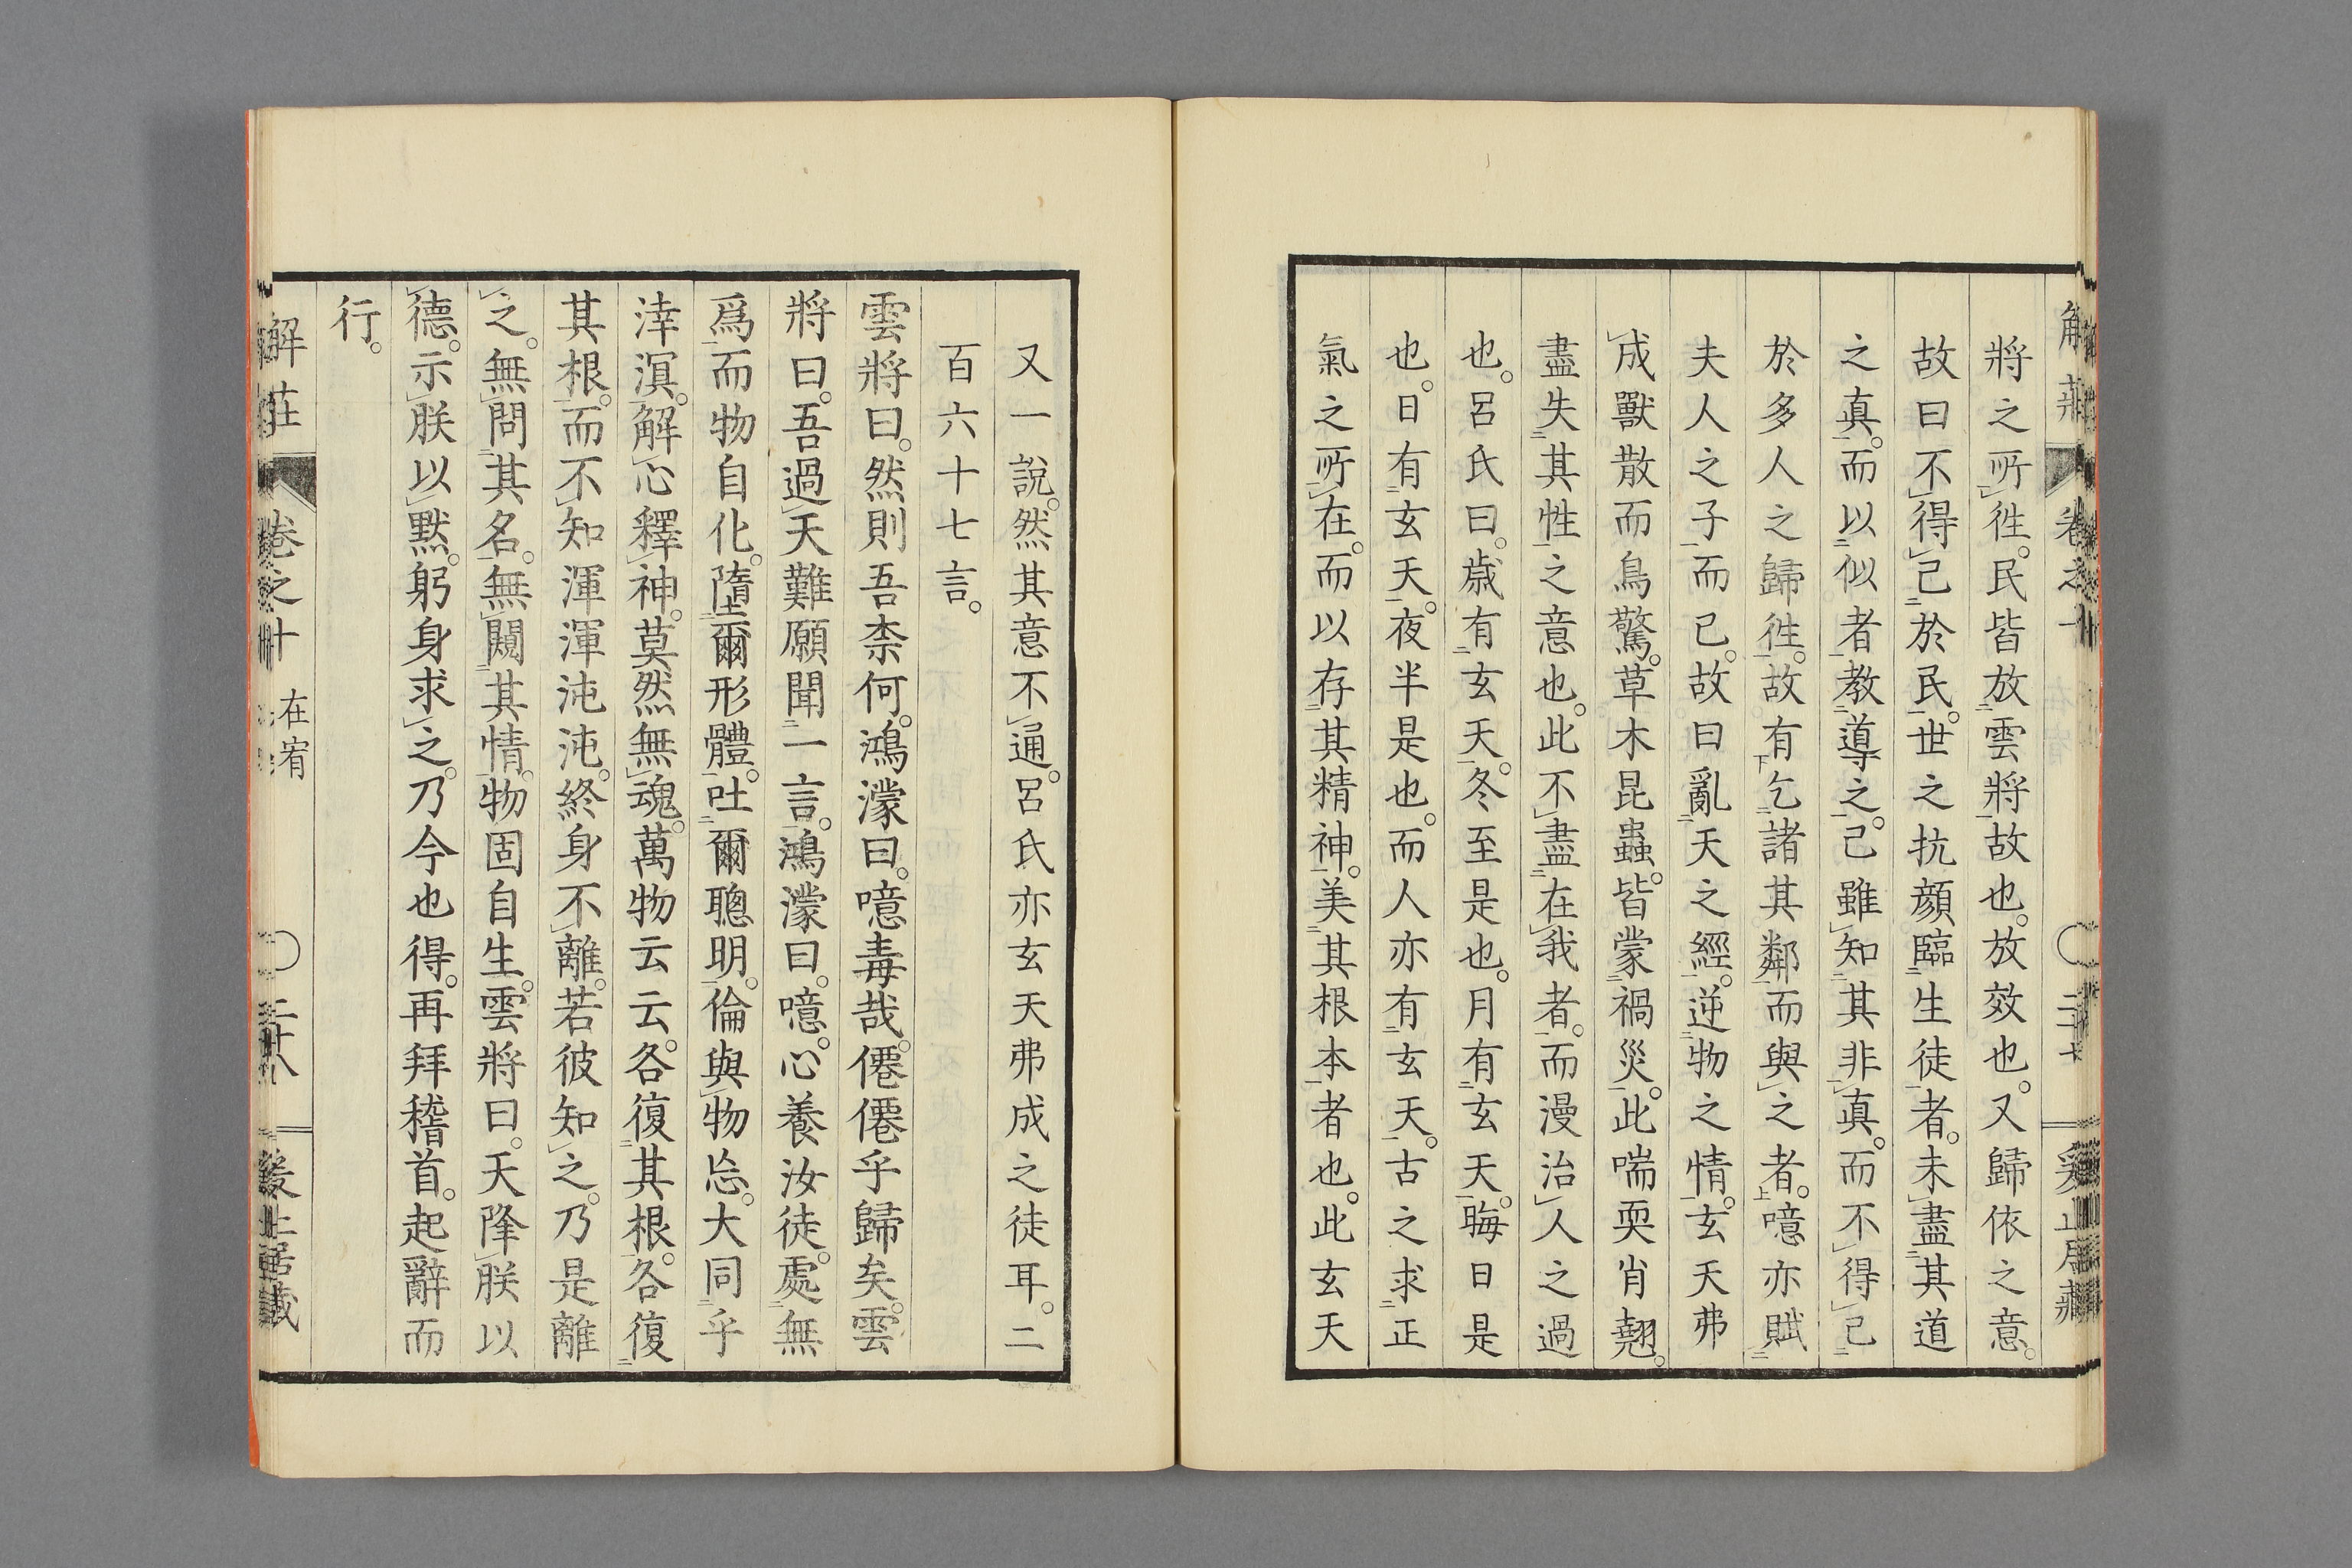 將之所徃。民皆放雲將故也。放效也。又歸依之意。
故曰不得已於民。世之抗顔臨生徒者。未盡其道
之真。而以似者教導之。已雖知其非真。而不得已
於多人之歸徃。故有乞諸其鄰而與之者。噫亦賦
夫人之子而已。故曰亂天之經。逆物之情。玄天弗
成獸散而鳥驚。草木昆蟲。皆蒙禍災。此喘耎肖翹。
盡失其性之意也。此不盡在我者。而漫治人之過
也。呂氏曰。歳有玄天。冬至是也。月有玄天。晦日是
也。日有玄天。夜半是也。而人亦有玄天。古之求正
氣之所在。而以存其精神。美其根本者也。此玄天
又一說。然其意不通。呂氏亦玄天弗成之徒耳。二
百六十七言。
雲將曰。然則吾柰何。鴻濛曰。噫毒哉。僊僊乎歸矣。雲
將曰。吾過天難願聞一言。鴻濛曰。噫。心養汝徒。處無
爲而物自化。隳爾形體。吐爾聰明。倫與物忘。大同乎
涬溟。解心釋神。莫然無魂。萬物云云。各復其根。各復
其根。而不知渾渾沌沌。終身不離。若彼知之。乃是離
之。無問其名。無闚其情。物固自生。雲將曰。天降朕以
德。示朕以默。躬身求之。乃今也得。再拜稽首。起辭而
行。
解莊
卷之十
在宥
二十八